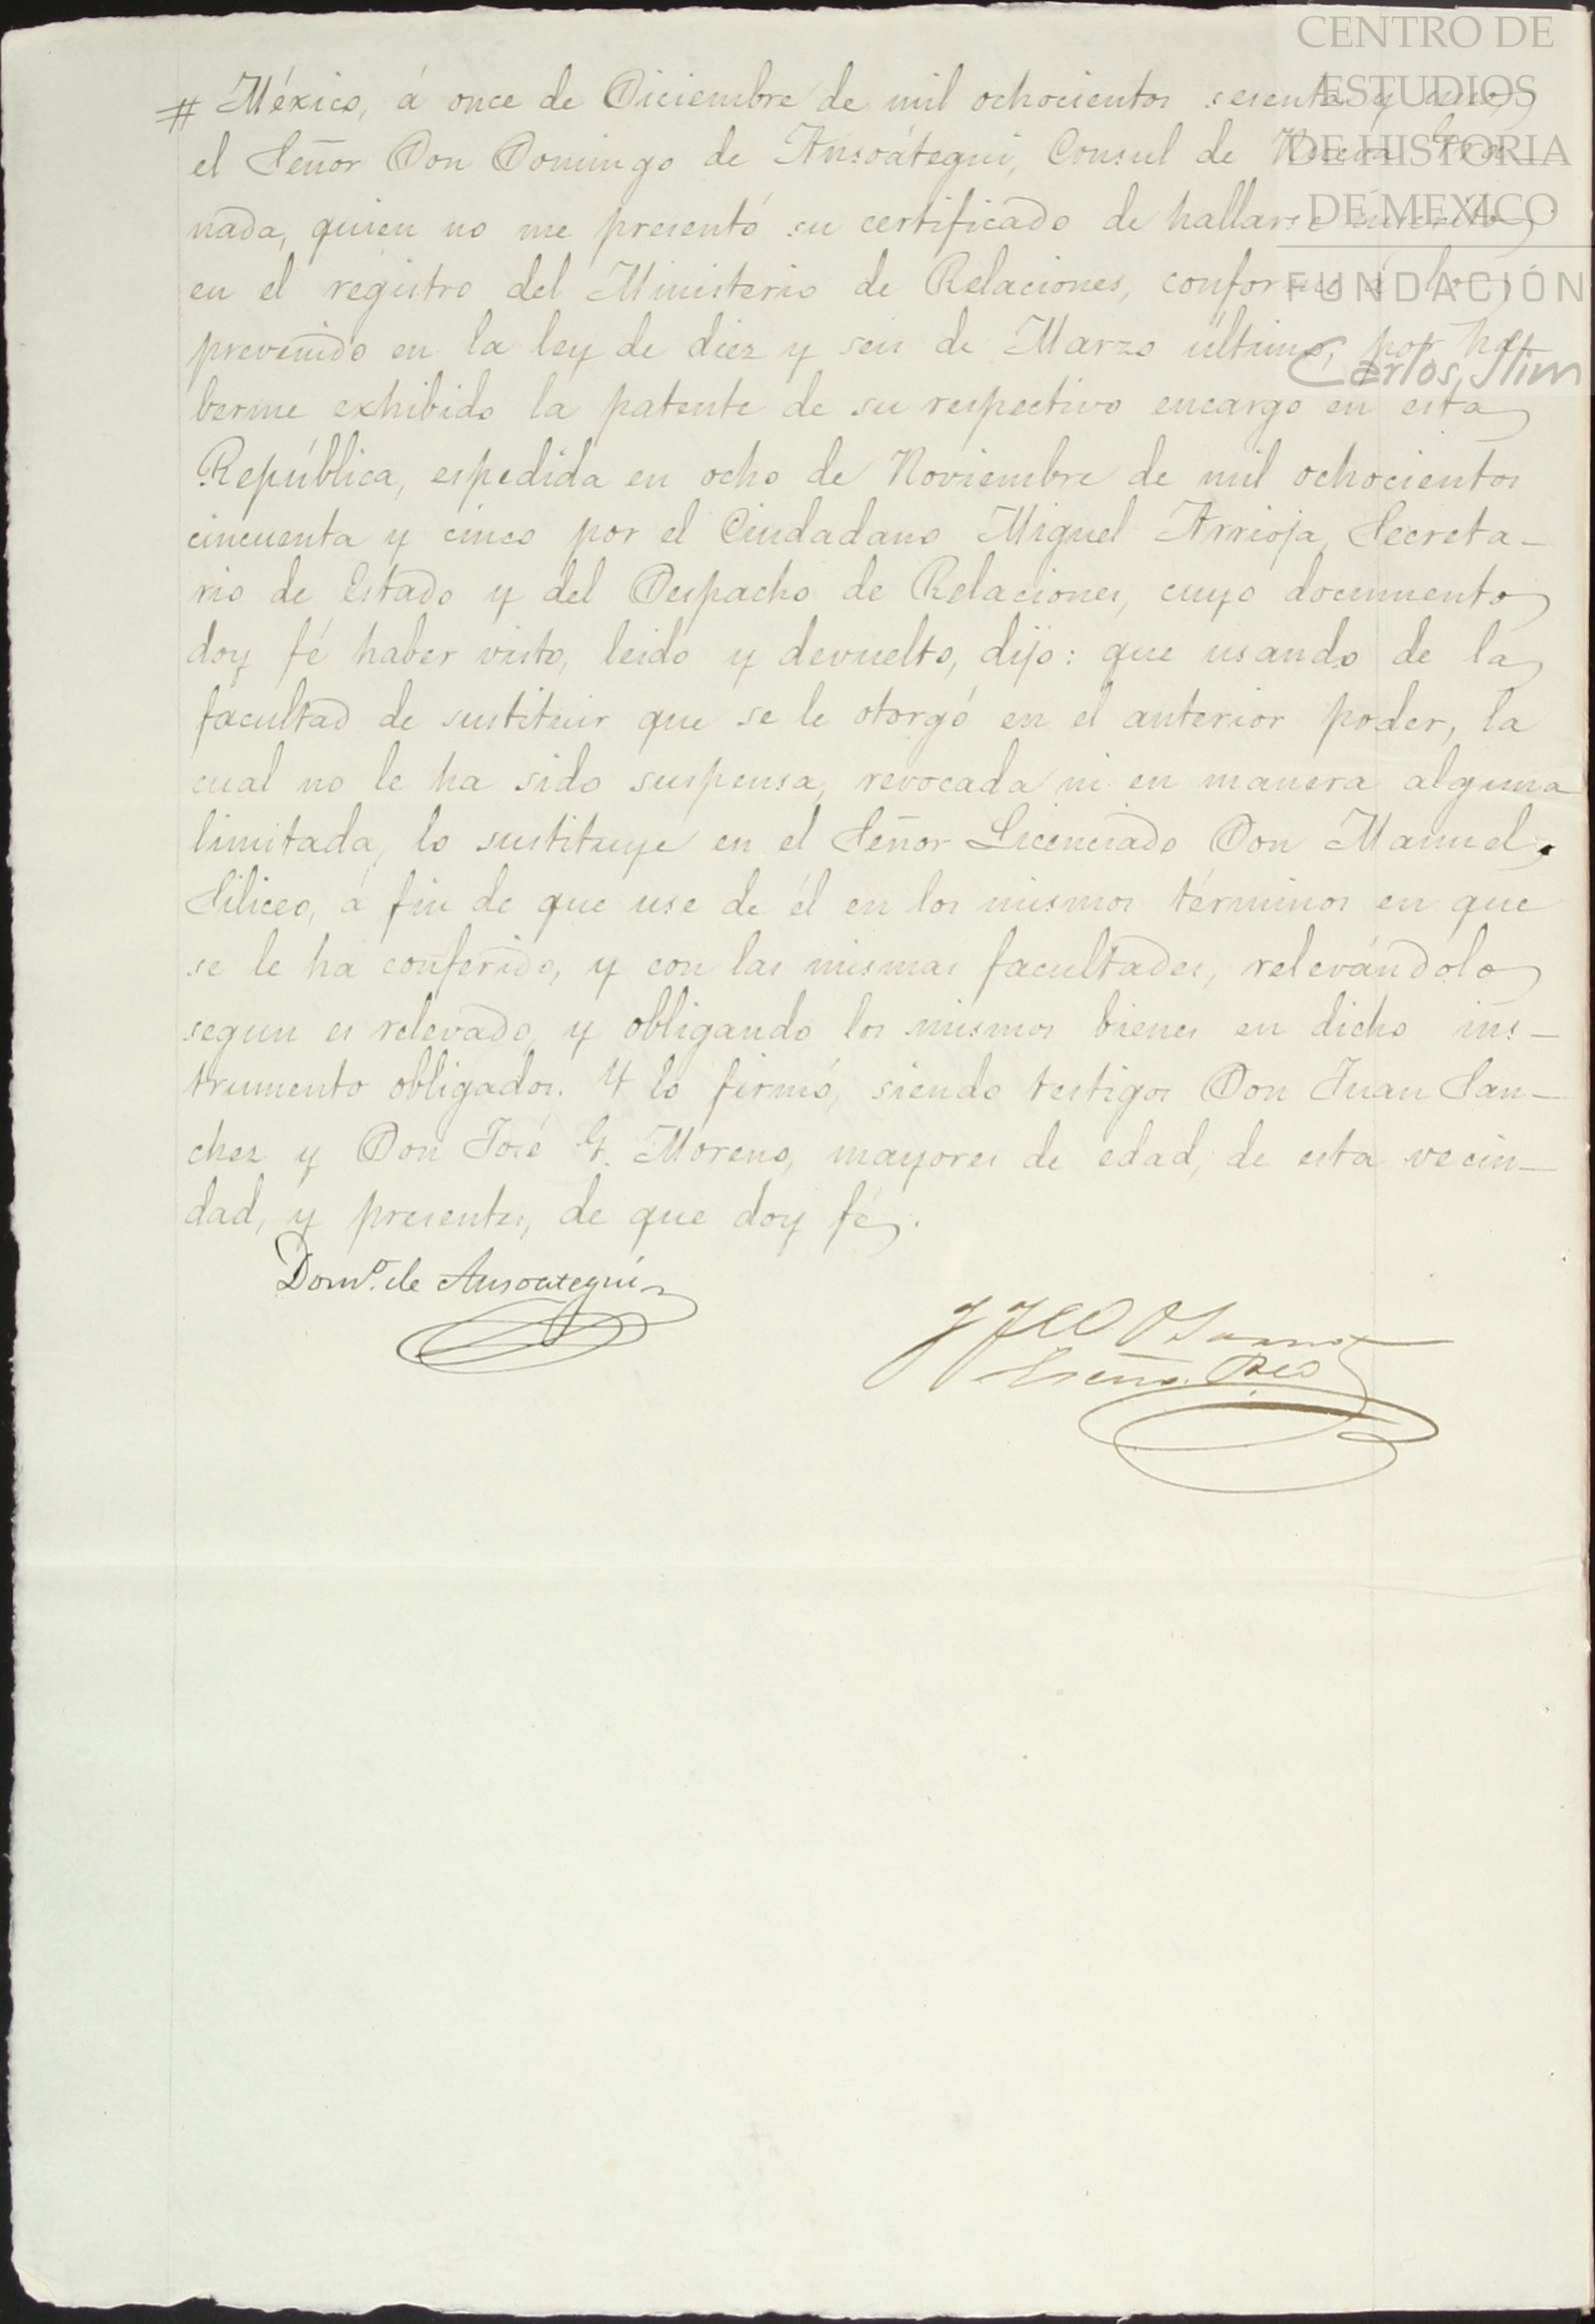 CENTRO DE
ESTUDIOS
DE HISTORIA
DE MEXICO
FUNDACIÓN
Carlos Slim
# México, á once de Diciembre de mil ochocientos sesenta y
el Señor Don Domingo de Ansoátegui, Consul de Nueva Gra-
nada, quien no me presentó su certificado de hallarse inscrito
en el registro del Ministerio de Relaciones, conforme á lo
prevenido en la ley de diez y seis de Marzo último, por ha-
berme exhibido la patente de su respectivo encargo en esta
República, espedida en ocho de Noviembre de mil ochocientos
cincuenta y cinco por el Ciudadano Miguel Arrioja, Secreta-
rio de Estado y del Despacho de Relaciones, cuyo documento
doy fé haber visto, leido y devuelto, dijo: que usando de la
facultad de sustituir que se le otorgó en el anterior poder, la
cual no le ha sido suspensa, revocada ni en manera alguna
limitada, lo sustituye en el Señor Licenciado Don Manuel
Siliceo, á fin de que use de él en los mismos términos en que
se le ha conferido, y con las mismas facultades, relevándolo
segun es relevado, y obligando los mismos bienes en dicho ins-
trumento obligados. Y lo firmó, siendo testigos Don Juan San-
chez y Don José G. Moreno, mayores de edad, de esta vecin-
dad, y presentes, de que doy fé.
Dom.º de Ansoategui